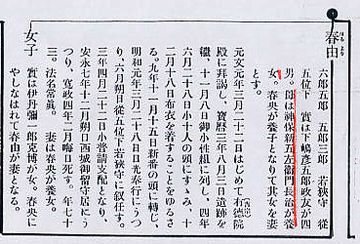 春由
六郎五郎 五郎三郎 若狭守 従
五位下 實は下嶋彦五郎政友が四
男。母は神保新五左衛門長治が養
女。春央が養子となりて其女を妻
とす。
元文元年三月二十二日はじめて有徳院
殿に拝謁し、寶暦三年八月三日遺跡を
繼、十一月八日御小性組に列し、四年
六月二十八日小十人の頭にすゝみ、十
二月十八日布衣を着することをゆるさ
る。九年十一月十五日新番の頭に轉じ、
明和元年三月二十八日日光奉行にうつ
り、六月朔日従五位下若狭守に叙任す。
三年四月二十二日小普請支配となり、
安永七年十二月朔日西城御留守居にう
つり、寛政四年二月晦日死す。年七十
三。法名常眞。 妻は春央が養女。
女子
實は伊丹彌一郎克博が女。春央に
やしなはれて春由が妻となる。